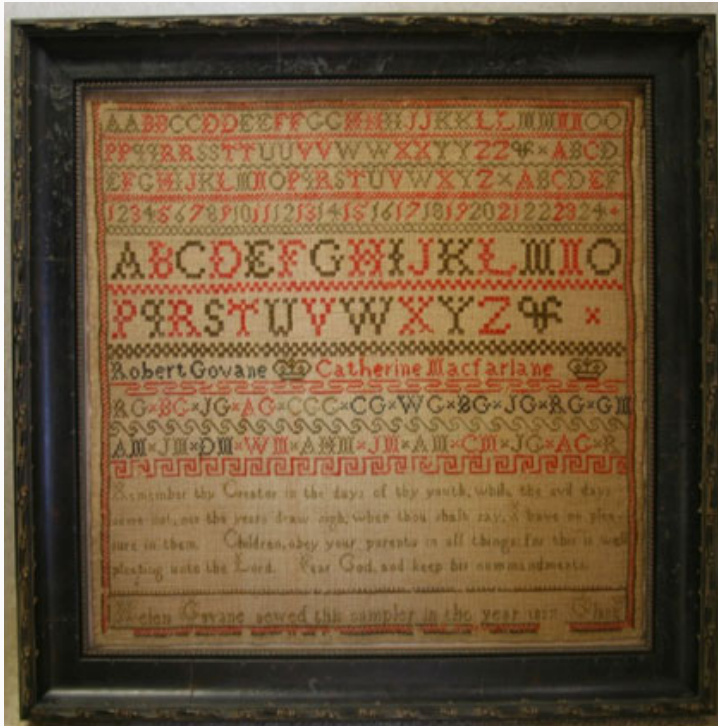 AABBCCDDEEFFGGHHIJJKKLLMMNNOO
PPQQRRSSTTUUVVWWXXYYZZ&×ABCD
EFGHIJKLMNOPQRSTUVWXYZ×ABCDEF
123456789101112131415161718192021222324
ABCDEFGHIJKLMNO
PQRSTUVWXYZ& ×
Robert Govane Catherine Macfarlane
RG×BG×JG×AG×CCC×CG×WG×BG×JG×RG×GM
AM×JM×DM×WM×AMM×JM×AM×CM×JG×AG×R
Remember thy Creator in the days of thy youth, while the evil days
come not, nor the years draw nigh, when thou shalt say, I have no plea-
sure in them. Children, obey your parents in all things: for this is well
pleasing unto the Lord. Fear God, and keep his commandments.
Helen Govane sewed this sampler in the year